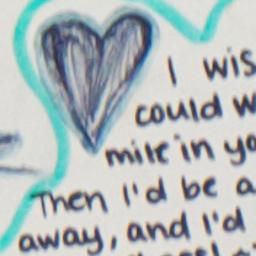 I wis
could w
mile in yo
Then I'd be a
away, and I'd